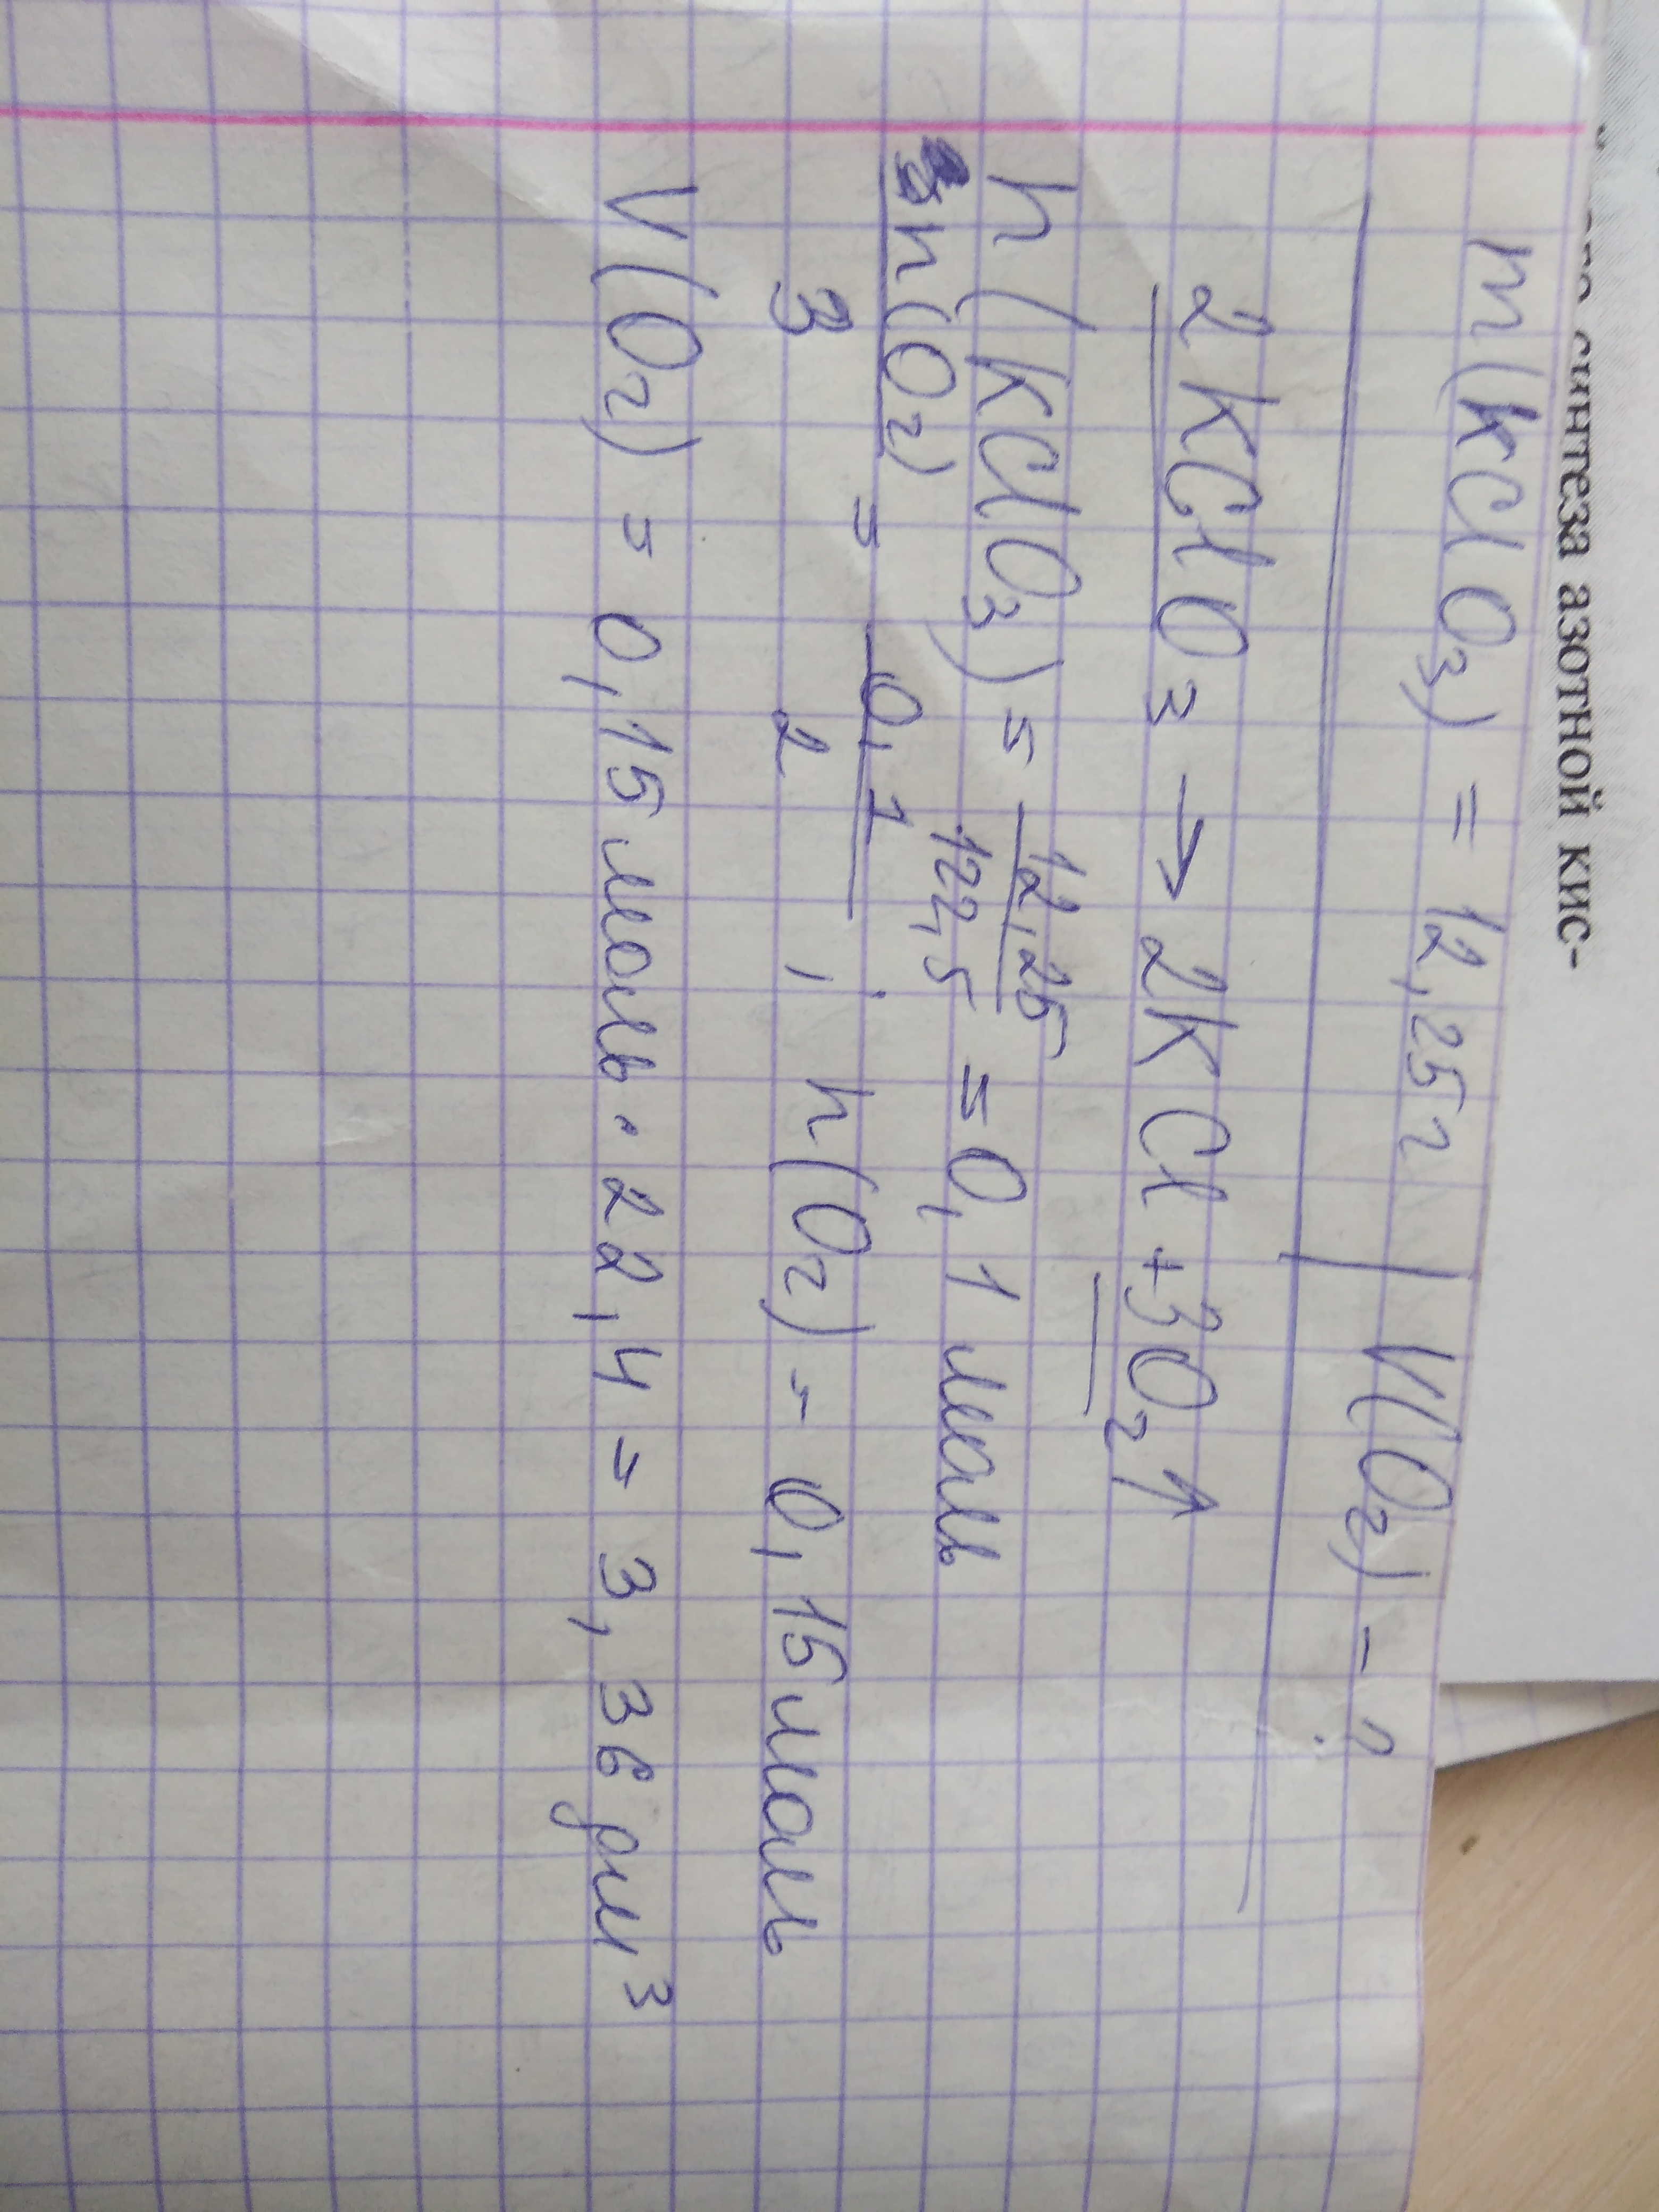 синтеза азотной кис-
m(KClO₃) = 12,25г | V(O₂) - ?
2KClO₃ → 2KCl + 3O₂↑
n(KClO₃) = 12,25/122,5 = 0,1 моль
n(O₂)/3 = 0,1/2 ; n(O₂) = 0,15 моль
V(O₂) = 0,15 моль · 22,4 = 3,36 дм³